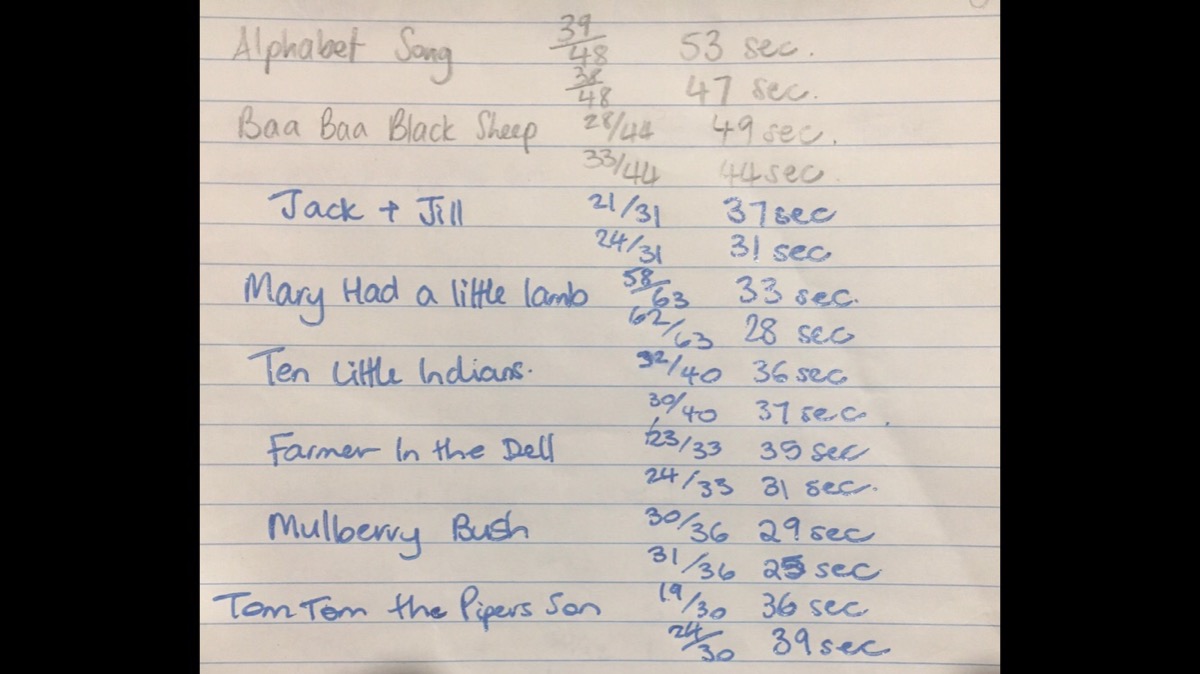 Alphabet Song 39/48 53 sec.
38/48 47 sec.
Baa Baa Black Sheep 28/44 49 sec.
33/44 44 sec
Jack + Jill 21/31 37 sec
24/31 31 sec
Mary Had a little lamb 58/63 33 sec.
62/63 28 sec
Ten Little Indians. 32/40 36 sec
30/40 37 sec.
Farmer In the Dell 23/33 35 sec
24/33 31 sec.
Mulberry Bush 30/36 29 sec
31/36 25 sec
Tom Tom the Pipers Son 19/30 36 sec
24/30 39 sec